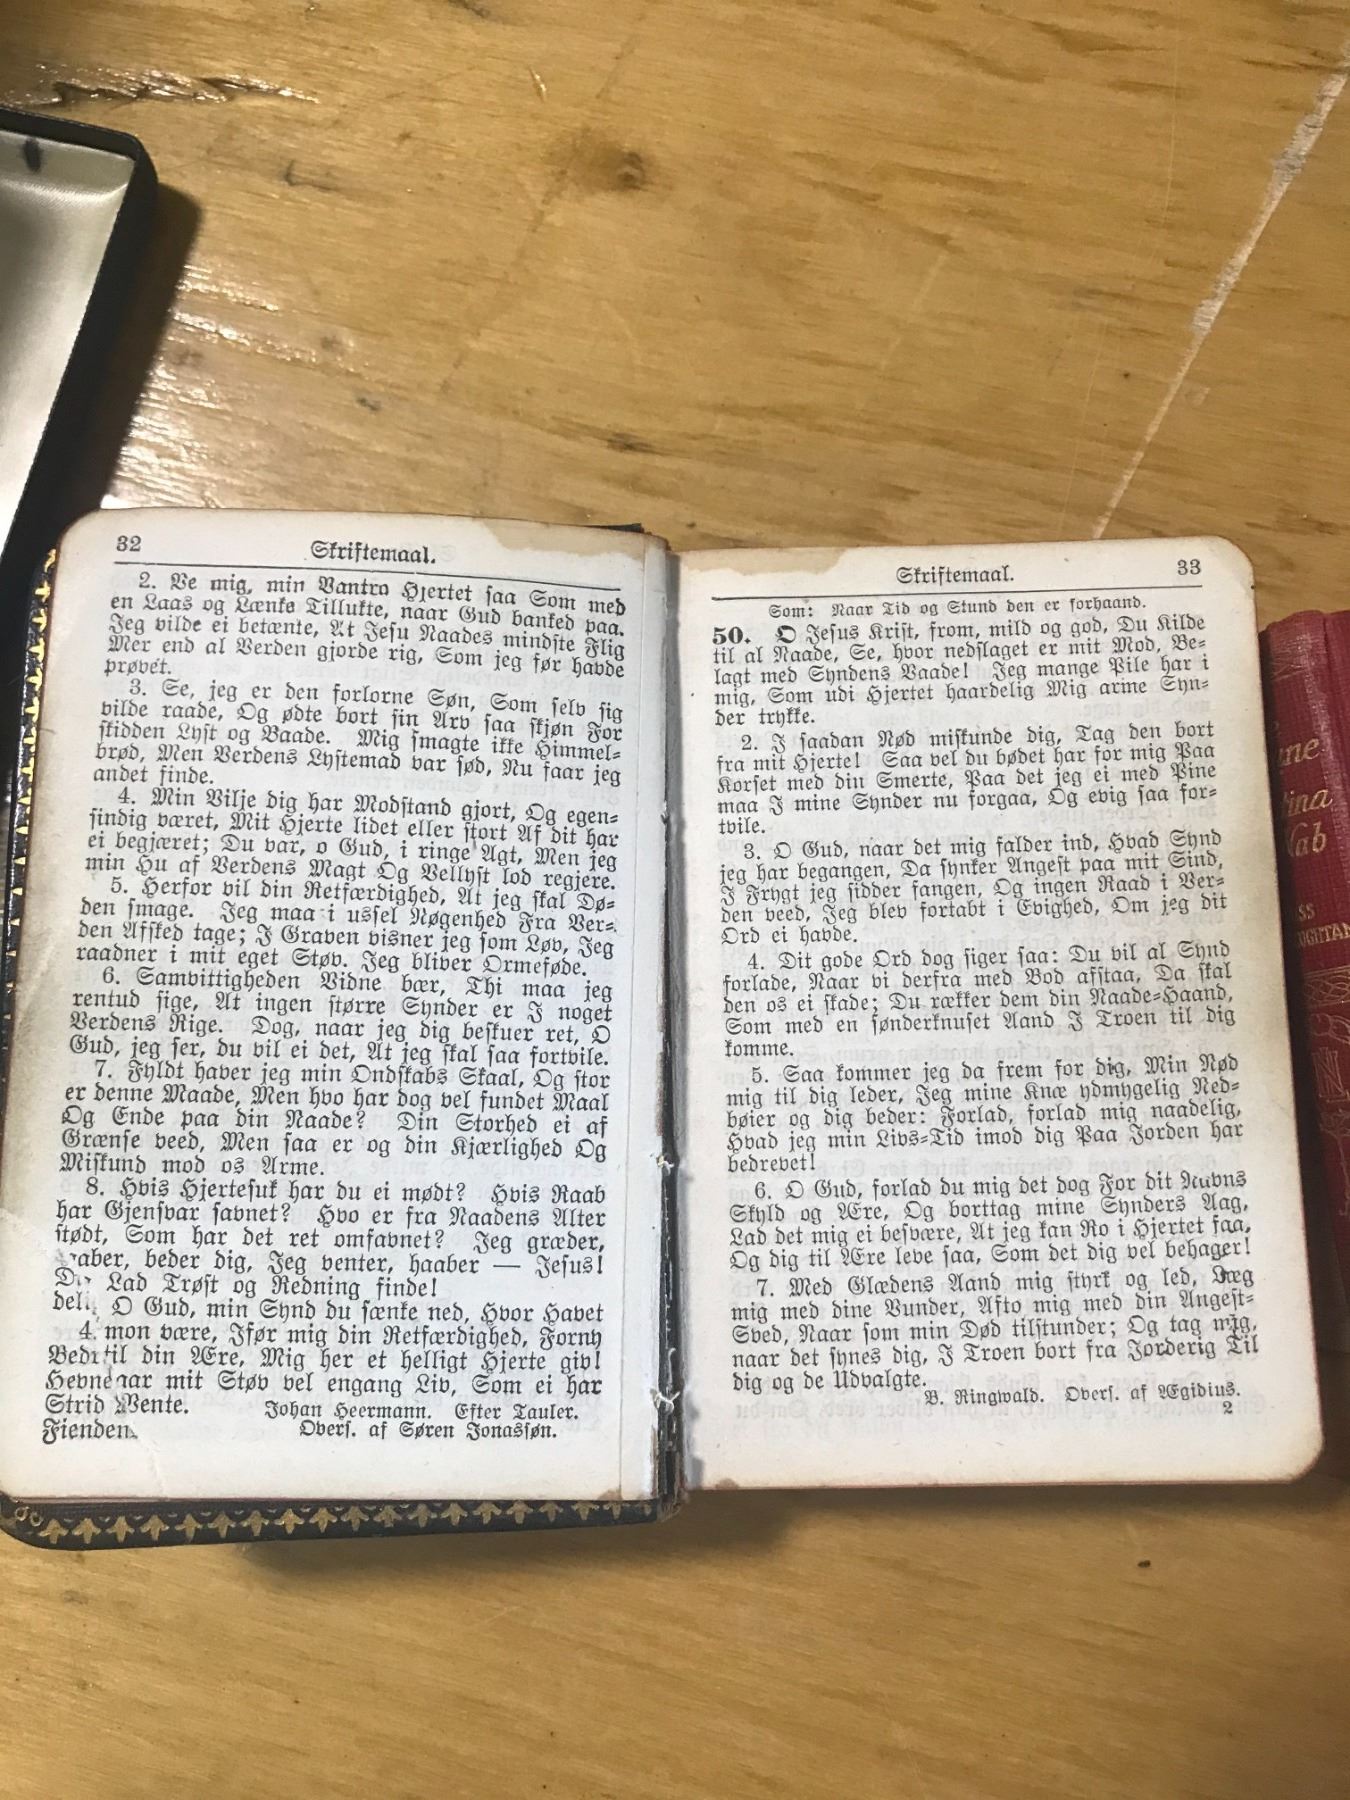 32
Skriftemaal.
2. Ve mig, min Vantro Hjertet saa Som med
en Laas og Lænke Tillukte, naar Gud banked paa.
Jeg vilde ei betænke, At Jesu Naades mindste Flig
Mer end al Verden gjorde rig, Som jeg før havde
prøvet.
3. Se, jeg er den forlorne Søn, Som selv sig
vilde raade, Og ødte bort sin Arv saa skjøn For
skidden Lyst og Baade. Mig smagte ikke Himmel-
brød, Men Verdens Lystemad var sød, Nu faar jeg
andet finde.
4. Min Vilje dig har Modstand gjort, Og egen-
sindig været, Mit Hjerte lidet eller stort Af dit har
ei begjæret; Du var, o Gud, i ringe Agt, Men jeg
min Hu af Verdens Magt Og Vellyst lod regjere.
5. Herfor vil din Retfærdighed, At jeg skal Dø-
den smage. Jeg maa i ussel Nøgenhed Fra Ver-
den Afsked tage; I Graven visner jeg som Løv, Jeg
raadner i mit eget Støv. Jeg bliver Ormeføde.
6. Samvittigheden Vidne bær, Thi maa jeg
rentud sige, At ingen større Synder er I noget
Verdens Rige. Dog, naar jeg dig beskuer ret, O
Gud, jeg ser, du vil ei det, At jeg skal saa fortvile.
7. Fyldt haver jeg min Ondskabs Skaal, Og stor
er denne Maade, Men hvo har dog vel fundet Maal
Og Ende paa din Naade? Din Storhed ei af
Grænse veed, Men saa er og din Kjærlighed Og
Miskund mod os Arme.
8. Hvis Hjertesuk har du ei mødt? Hvis Raab
har Gjensvar savnet? Hvo er fra Naadens Alter
stødt, Som har det ret omfavnet? Jeg græder,
raaber, beder dig, Jeg venter, haaber — Jesus!
Lad Trøst og Redning finde!
O Gud, min Synd du sænke ned, Hvor Havet
4. mon være, Ifør mig din Retfærdighed, Forny
Bedr til din Ære, Mig her et helligt Hjerte giv!
Hevne aar mit Støv vel engang Liv, Som ei har
Strid Vente.
Johan Heermann. Efter Tauler.
Fienden
Overs. af Søren Jonassøn.
Skriftemaal.
33
Som: Naar Tid og Stund den er forhaand.
50. O Jesus Krist, from, mild og god, Du Kilde
til al Naade, Se, hvor nedslaget er mit Mod, Be-
lagt med Syndens Vaade! Jeg mange Pile har i
mig, Som udi Hjertet haardelig Mig arme Syn-
der trykke.
2. I saadan Nød miskunde dig, Tag den bort
fra mit Hjerte! Saa vel du bødet har for mig Paa
Korset med din Smerte, Paa det jeg ei med Pine
maa I mine Synder nu forgaa, Og evig saa for-
tvile.
3. O Gud, naar det mig falder ind, Hvad Synd
jeg har begangen, Da synker Angest paa mit Sind,
I Frygt jeg sidder fangen, Og ingen Raad i Ver-
den veed, Jeg blev fortabt i Evighed, Om jeg dit
Ord ei havde.
4. Dit gode Ord dog siger saa: Du vil al Synd
forlade, Naar vi derfra med Bod afstaa, Da skal
den os ei skade; Du rækker dem din Naade-Haand,
Som med en sønderknuset Aand I Troen til dig
komme.
5. Saa kommer jeg da frem for dig, Min Nød
mig til dig leder, Jeg mine Knæ ydmygelig Ned-
bøier og dig beder: Forlad, forlad mig naadelig,
Hvad jeg min Livs-Tid imod dig Paa Jorden har
bedrevet!
6. O Gud, forlad du mig det dog For dit Navns
Skyld og Ære, Og borttag mine Synders Aag,
Lad det mig ei besvære, At jeg kan Ro i Hjertet faa,
Og dig til Ære leve saa, Som det dig vel behager!
7. Med Glædens Aand mig styrk og led, Læg
mig med dine Vunder, Afto mig med din Angest-
Sved, Naar som min Død tilstunder; Og tag mig,
naar det synes dig, I Troen bort fra Jorderig Til
dig og de Udvalgte.
B. Ringwald. Overs. af Ægidius.
2